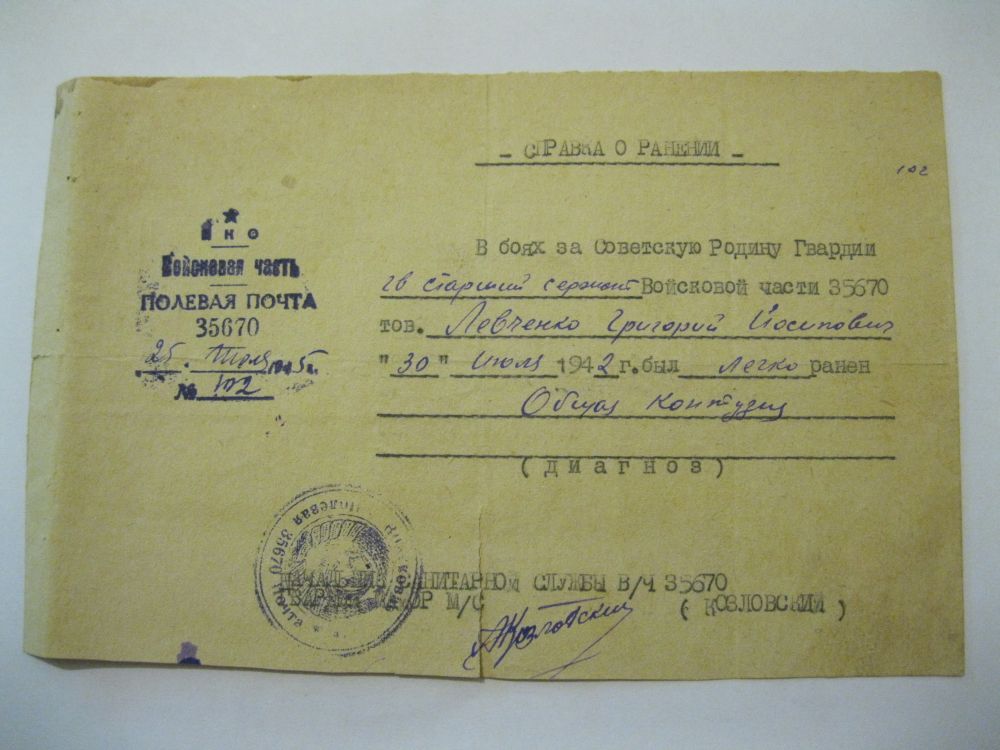 - СПРАВКА О РАНЕНИИ -
102
НКО
Войсковая часть
ПОЛЕВАЯ ПОЧТА
35670
25. Июля 1945г.
№ 102
В боях за Советскую Родину Гвардии
гв старший сержант Войсковой части 35670
тов. Левченко Григорий Йосипович
"30" Июля 1942 г. был Легко ранен
Общая контузия
(ДИАГНОЗ)
Полевая почта 35670
НАЧАЛЬНИК САНИТАРНОЙ СЛУЖБЫ В/Ч 35670
ГВАРДИИ МАЙОР М/С
(КОЗЛОВСКИЙ)
АКозловский